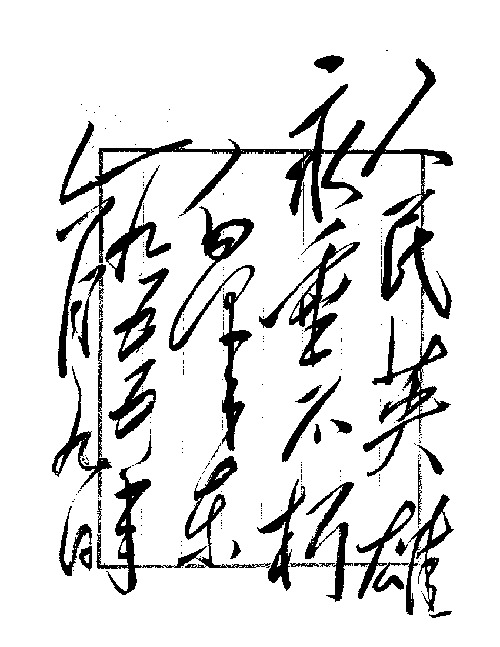 人民英雄
永垂不朽
毛澤東
一九五五年
六月九日